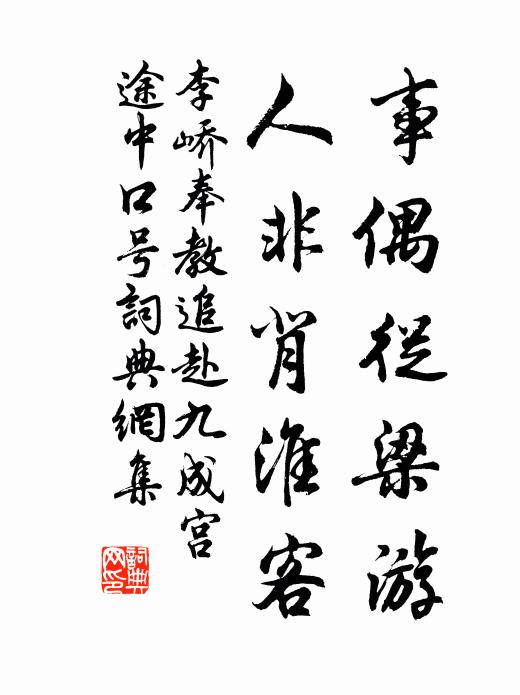 事偶從梁游
人非背淮客
李嶠奉教追赴九成宮
途中口号詞典網集
詞典
网印